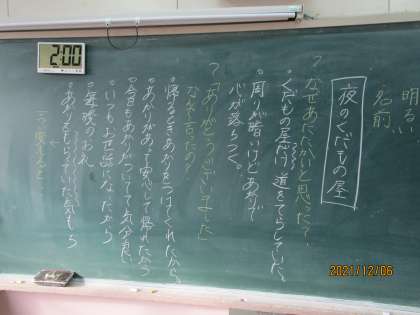 明るい
名前
夜のくだもの屋
?なぜあたたかいと思った?
・くだもの屋だけ道をてらしていた。
・周りが暗いけどあかりで
心が落ちつく。
?「ありがとうございました」
なぜ言ったの?
・帰るときあかりをつけてくれたから。
・あかりがあって安心して帰れたから
・今日もあかりがついてて気分が良い
・いつもお世話になったから
・毎晩のお礼
2:00
2021/12/06